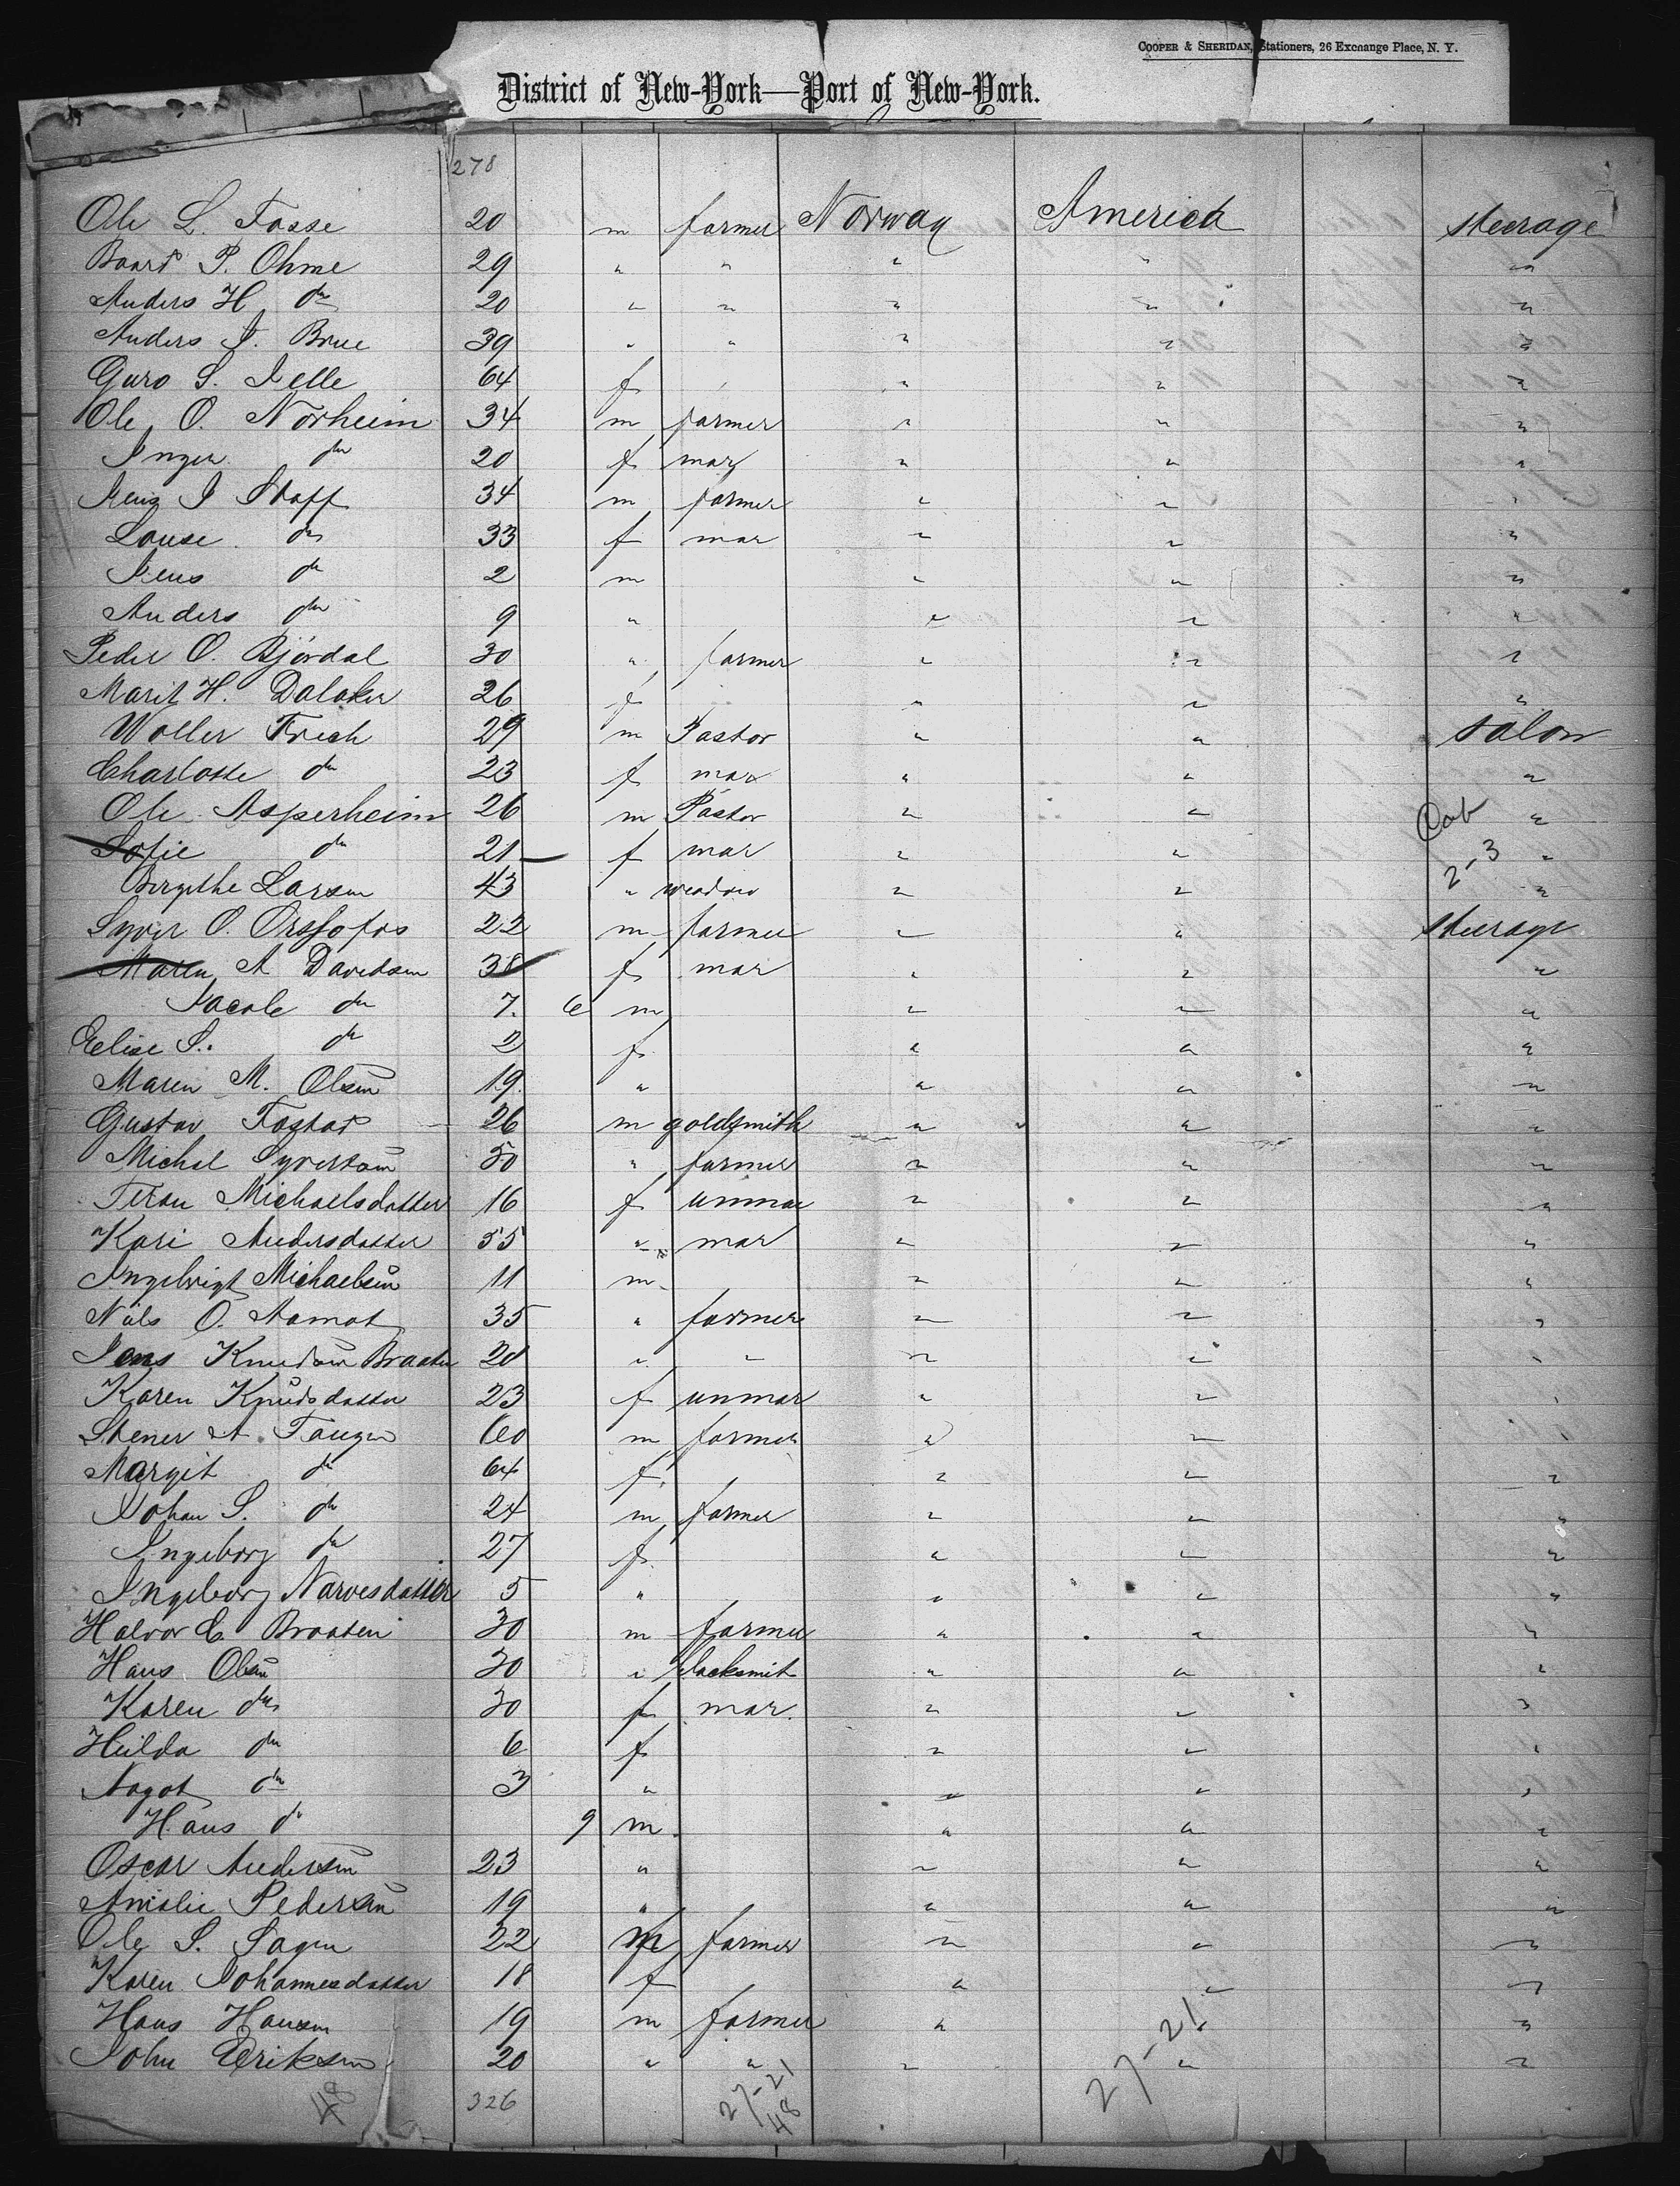 COOPER & SHERIDAN, Stationers, 26 Exchange Place, N. Y.
District of New-York—Port of New-York.
278
Ole L. Fosse 20 m farmer Norway America steerage
Baard P. Ohme 29 " " " " "
Anders H do 20 " " " " "
Anders I. Brue 39 " " " " "
Guro S. Ielle 64 f " " "
Ole O. Norheim 34 m farmer " " "
Inger do 20 f mar " " "
Jens J Skaff 34 m farmer " " "
Louse do 33 f mar " " "
Jens do 2 m " " "
Anders do 9 " " " "
Peder O. Björdal 30 " farmer " " "
Marit H. Dalaker 26 f " " "
Woller Frich 29 m Pastor " " salon
Charlotte do 23 f mar " " "
Ole Asperheim 26 m Pastor " " Cab "
Sofie do 21 f mar " " 2-3 "
Birgithe Larsen 43 " weadow " " "
Syver O. 22 m farmer " " steerage
Maren A Davidsen 38 f mar " " "
Jacob do 7. 6 m " " "
Eelise S. do 2 f " " "
Maren M. Olsen 19. " " " "
Gustav Fostad 26 m goldsmith " " "
Michel Syversen 50 " farmer " " "
Teran Michaelsdatter 16 f unmar " " "
Kari Andersdatter 55 " mar " " "
Ingebrigt Michaelsen 11 m " " "
Nils O. Aamot 35 " farmer " " "
Jens Knudsen Braaten 20 " " " " "
Karen Knudsdatter 23 f unmar " " "
Stener A. Haugen 60 m farmer " " "
Margit do 64 f. " " "
Johan S. do 24 m farmer " " "
Ingeborg do 27 f. " " "
Ingeborg Narvesdatter 5 " " " "
Halvor E. Braaten 30 m farmer " " "
Hans Olsen 30 " blacksmit " " "
Karen do 30 f mar. " " "
Hilda do 6 f " " "
Nagot do 3 " " " "
Hans do 9 m " " "
Oscar Andersen 23 " " " "
Amalie Pedersen 19 " " " "
Ole S. Sagen 22 m farmer " " "
Karen Johannesdatter 18 f " " "
Hans Hansen 19 m farmer " " "
John Eriksen 20 " " " " "
48 326 27-21 27-21
48